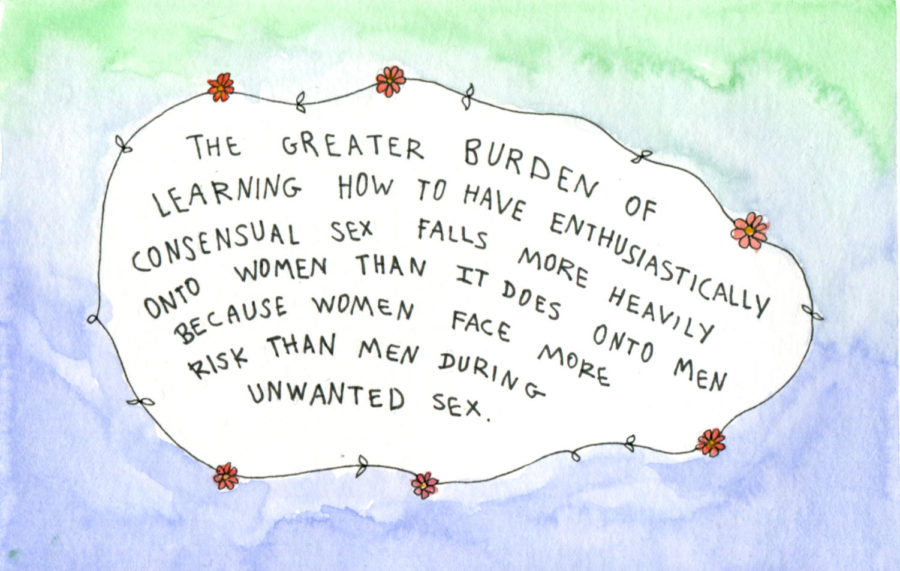 THE GREATER BURDEN OF
LEARNING HOW TO HAVE ENTHUSIASTICALLY
CONSENSUAL SEX FALLS MORE HEAVILY
ONTO WOMEN THAN IT DOES ONTO MEN
BECAUSE WOMEN FACE MORE
RISK THAN MEN DURING
UNWANTED SEX.